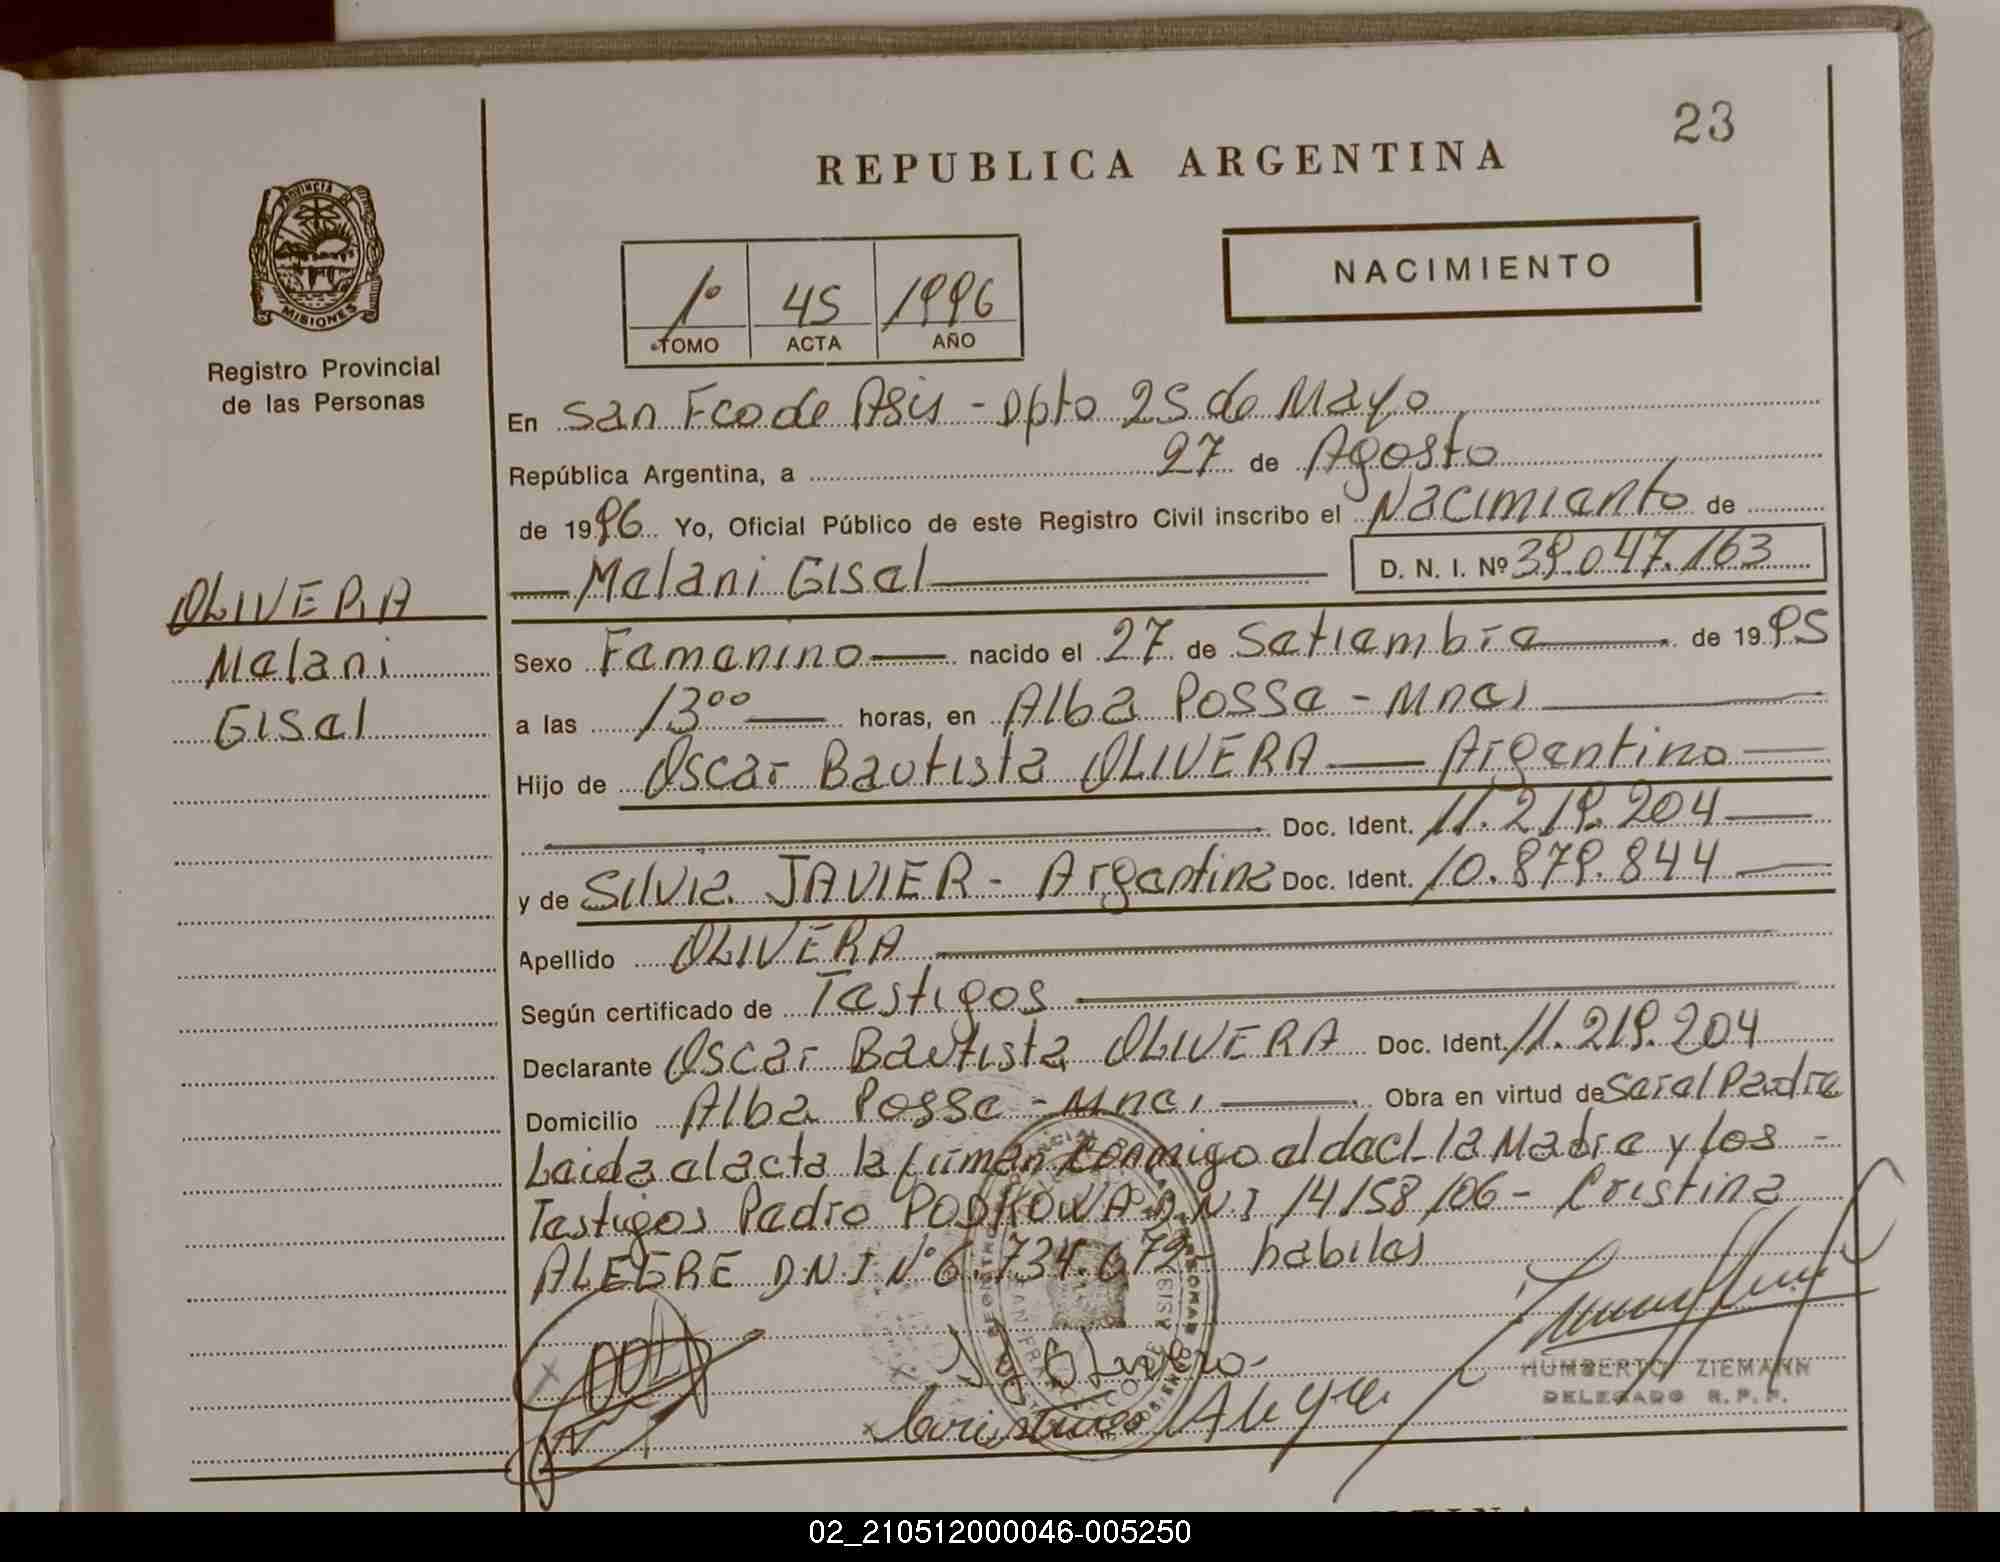 23
REPUBLICA ARGENTINA
PROVINCIA DE
MISIONES
Registro Provincial
de las Personas
1º 45 1996
TOMO ACTA AÑO
NACIMIENTO
En San Fco de Asis - Dpto 25 de Mayo
República Argentina, a 27 de Agosto
de 1996 Yo, Oficial Público de este Registro Civil inscribo el Nacimiento de
Melani Gisel D. N. I. Nº 39.047.163
OLIVERA
Melani
Gisel
Sexo Femenino nacido el 27 de Setiembre de 1995
a las 13ºº horas, en Alba Posse - Mnes
Hijo de Oscar Bautista OLIVERA Argentino
Doc. Ident. 11.219.204
y de Silvia JAVIER - Argentina Doc. Ident. 10.879.844
Apellido OLIVERA
Según certificado de Testigos
Declarante Oscar Bautista OLIVERA Doc. Ident. 11.219.204
Domicilio Alba Posse - Mnes Obra en virtud de Ser el Padre
Leida el acta la firman conmigo el decl. la Madre y los -
Testigos Pedro PODKOWA D.N.I 14.158.106 - Cristina
ALEGRE D.N.I Nº 6.734.679 - habiles
HUMBERTO ZIEMANN
DELEGADO R.P.P.
02_210512000046-005250